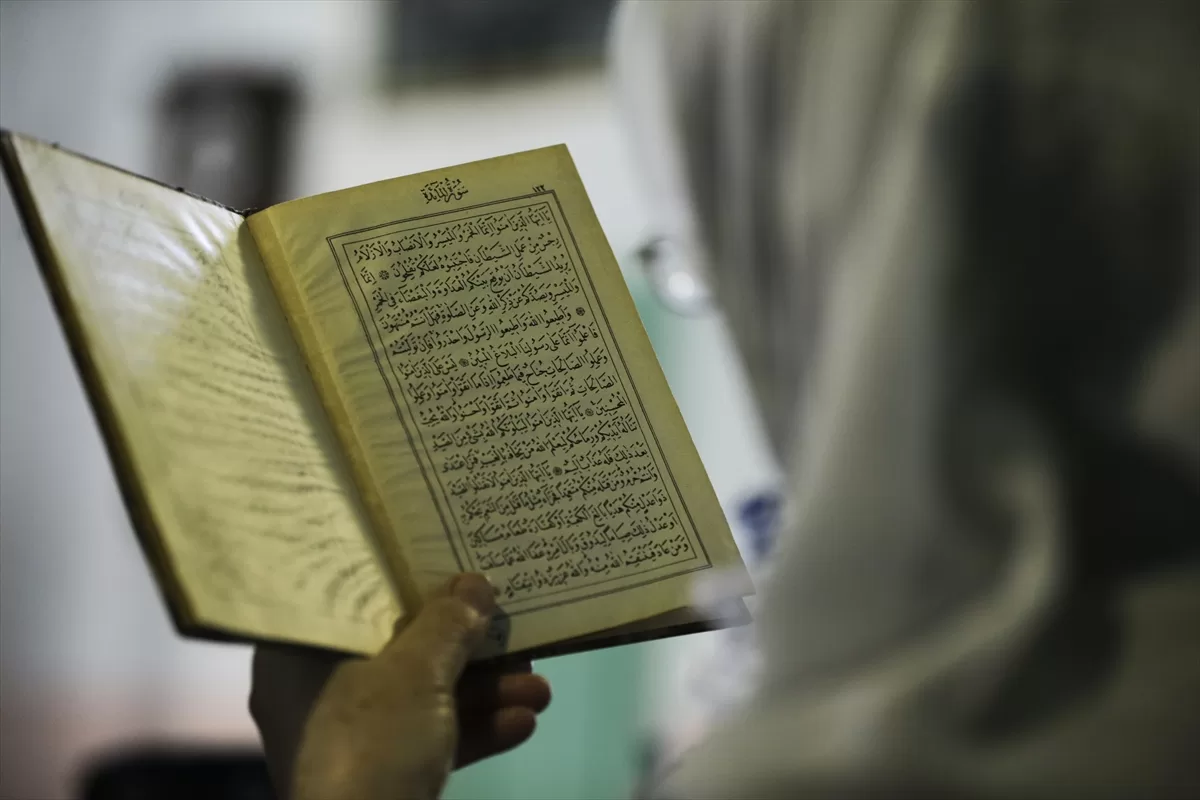 سورة المائدة ١٢٢
يَا أَيُّهَا الَّذِينَ آمَنُوا إِنَّمَا الْخَمْرُ وَالْمَيْسِرُ وَالْأَنْصَابُ وَالْأَزْلَامُ
رِجْسٌ مِنْ عَمَلِ الشَّيْطَانِ فَاجْتَنِبُوهُ لَعَلَّكُمْ تُفْلِحُونَ ۞ إِنَّمَا
يُرِيدُ الشَّيْطَانُ أَنْ يُوقِعَ بَيْنَكُمُ الْعَدَاوَةَ وَالْبَغْضَاءَ فِي الْخَمْرِ
وَالْمَيْسِرِ وَيَصُدَّكُمْ عَنْ ذِكْرِ اللَّهِ وَعَنِ الصَّلٰوةِ فَهَلْ أَنْتُمْ مُنْتَهُونَ
۞ وَأَطِيعُوا اللَّهَ وَأَطِيعُوا الرَّسُولَ وَاحْذَرُوا فَإِنْ تَوَلَّيْتُمْ
فَاعْلَمُوا أَنَّمَا عَلَى رَسُولِنَا الْبَلَاغُ الْمُبِينُ ۞ لَيْسَ عَلَى الَّذِينَ آمَنُوا
وَعَمِلُوا الصَّالِحَاتِ جُنَاحٌ فِيمَا طَعِمُوا إِذَا مَا اتَّقَوْا وَآمَنُوا وَعَمِلُوا
الصَّالِحَاتِ ثُمَّ اتَّقَوْا وَآمَنُوا ثُمَّ اتَّقَوْا وَأَحْسَنُوا وَاللَّهُ يُحِبُّ
الْمُحْسِنِينَ ۞ يَا أَيُّهَا الَّذِينَ آمَنُوا لَيَبْلُوَنَّكُمُ اللَّهُ بِشَيْءٍ مِنَ الصَّيْدِ
تَنَالُهُ أَيْدِيكُمْ وَرِمَاحُكُمْ لِيَعْلَمَ اللَّهُ مَنْ يَخَافُهُ بِالْغَيْبِ فَمَنِ اعْتَدَى
بَعْدَ ذَلِكَ فَلَهُ عَذَابٌ أَلِيمٌ ۞ يَا أَيُّهَا الَّذِينَ آمَنُوا لَا تَقْتُلُوا الصَّيْدَ
وَأَنْتُمْ حُرُمٌ وَمَنْ قَتَلَهُ مِنْكُمْ مُتَعَمِّدًا فَجَزَاءٌ مِثْلُ مَا قَتَلَ مِنَ النَّعَمِ يَحْكُمُ بِهِ
ذَوَا عَدْلٍ مِنْكُمْ هَدْيًا بَالِغَ الْكَعْبَةِ أَوْ كَفَّارَةٌ طَعَامُ مَسَاكِينَ
أَوْ عَدْلُ ذَلِكَ صِيَامًا لِيَذُوقَ وَبَالَ أَمْرِهِ عَفَا اللَّهُ عَمَّا سَلَفَ
وَمَنْ عَادَ فَيَنْتَقِمُ اللَّهُ مِنْهُ وَاللَّهُ عَزِيزٌ ذُو انْتِقَامٍ ۞